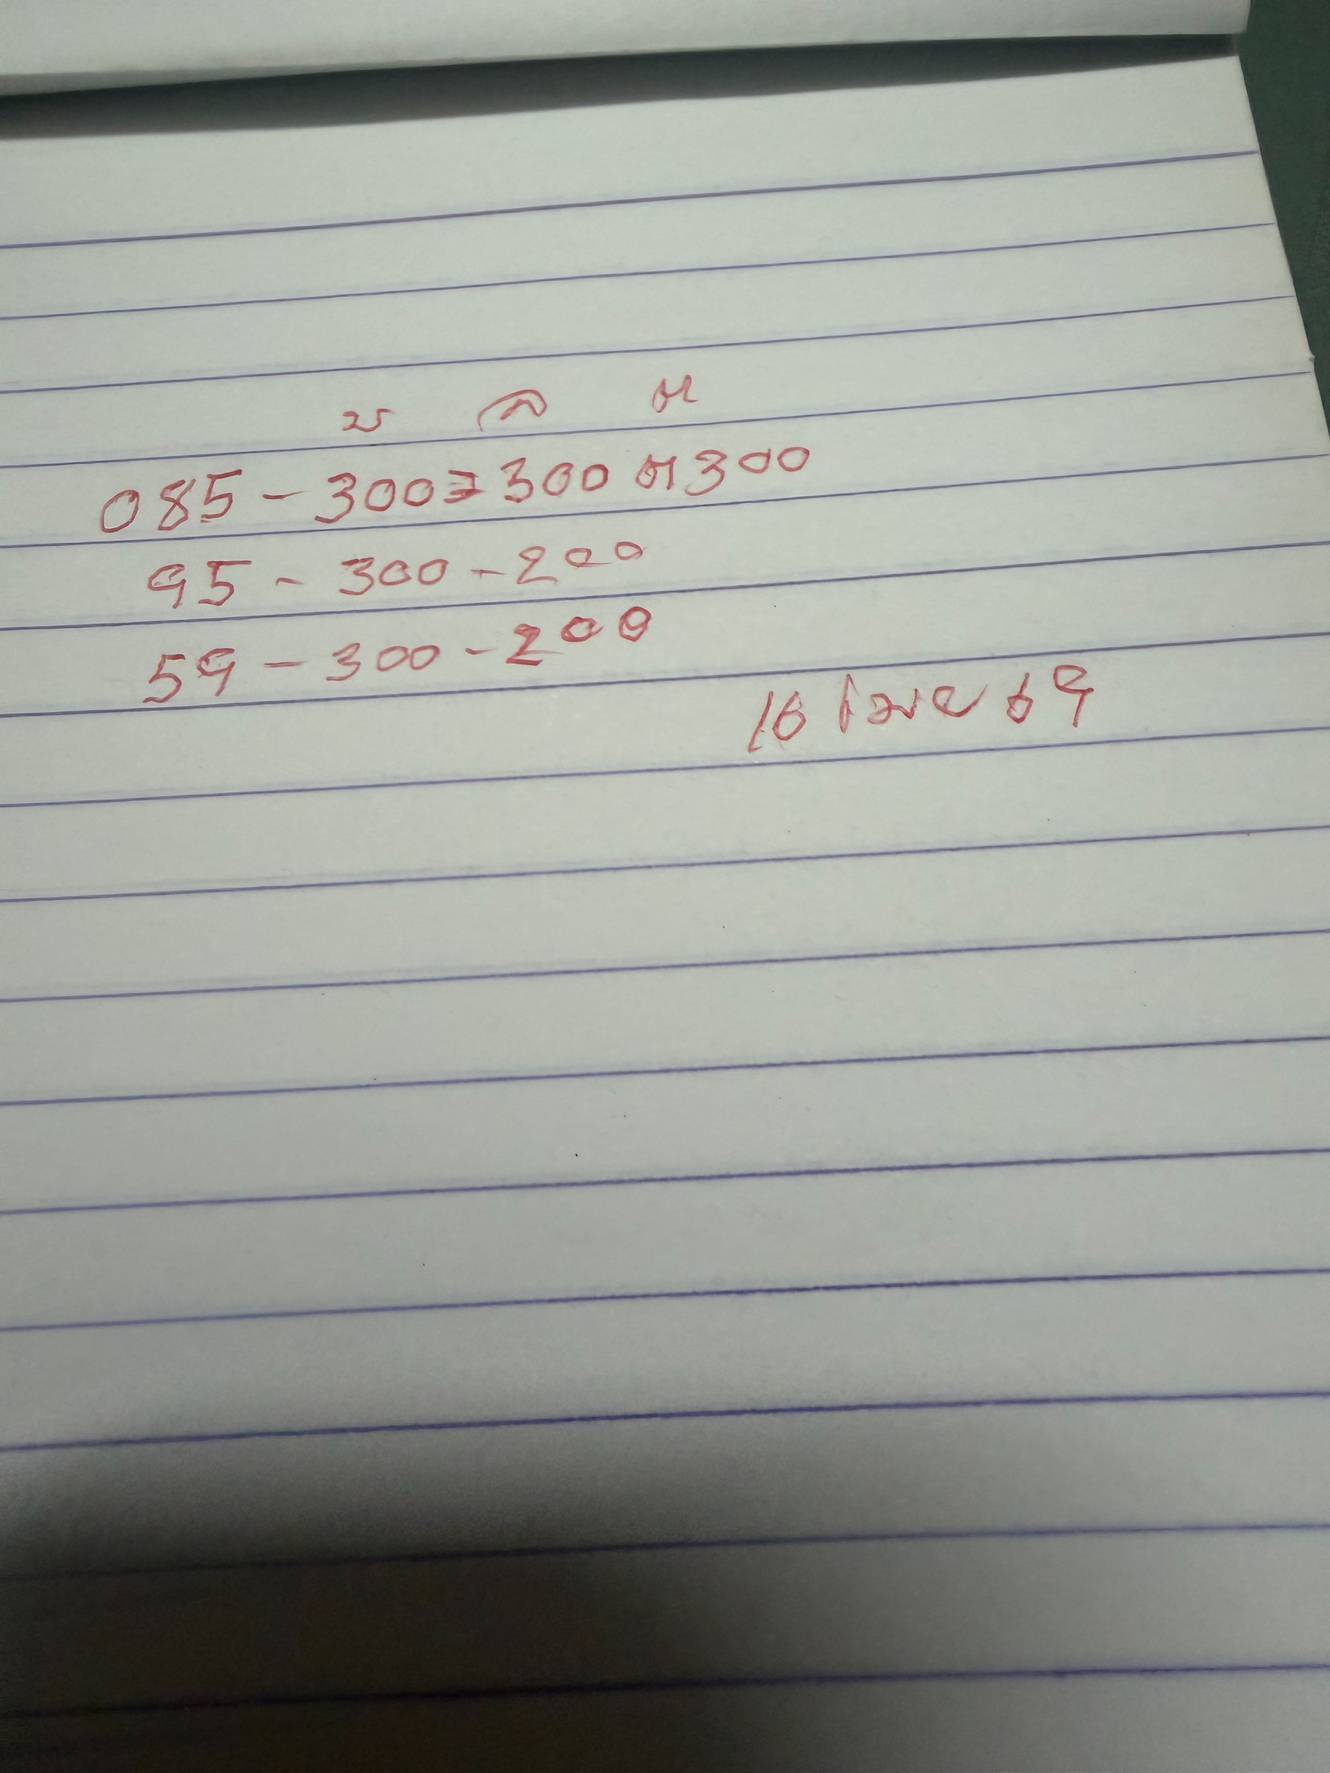 บ ล ต
085 - 300 = 300 ต 300
95 - 300 - 200
59 - 300 - 200
16 เมย 69